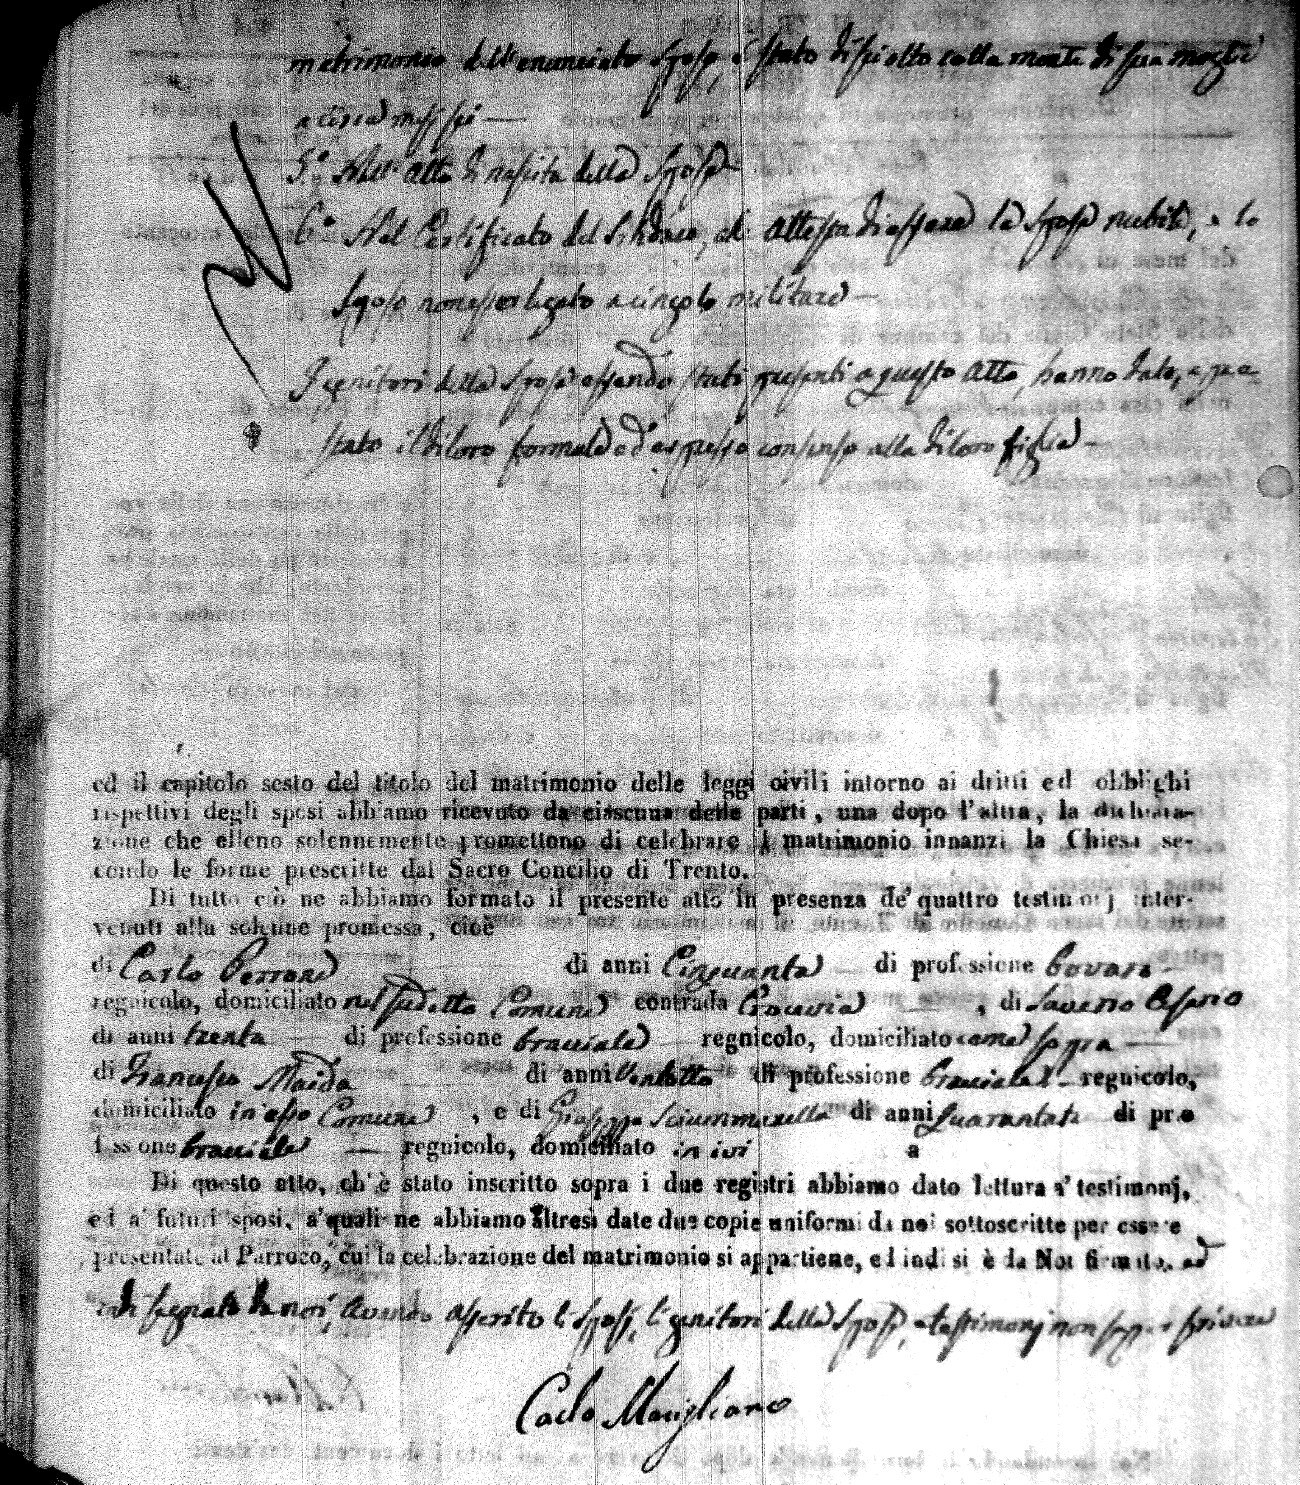 matrimonio dell'enunciato sposo, è stato disciolto colla morte di sua moglie
a circa mesi sei —
5.° Nell'atto di nascita della Sposa
6.° Nel Certificato del Sindaco, che attesta di essere la sposa nubile, e lo
sposo non esser legato a cingolo militare —
I genitori della Sposa essendo stati presenti a questo atto, hanno dato, e pre-
stato il di loro formale ed espresso consenso alla di loro figlia —
ed il capitolo sesto del titolo del matrimonio delle leggi civili intorno ai dritti ed obblighi
rispettivi degli sposi abbiamo ricevuto da ciascuna delle parti, una dopo l'altra, la dichiara-
zione che elleno solennemente promettono di celebrare il matrimonio innanzi la Chiesa se-
condo le forme prescritte dal Sacro Concilio di Trento.
Di tutto ciò ne abbiamo formato il presente atto in presenza de' quattro testimonj inter-
venuti alla solenne promessa, cioè
di Carlo Perrone di anni Cinquanta di professione bovaro
regnicolo, domiciliato nel sudetto Comune contrada , di Saverio
di anni trenta di professione bracciale regnicolo, domiciliato come sopra
di Francesco Maida di anni Ventotto di professione bracciale regnicolo,
domiciliato in esso Comune , e di Giuseppe Sciummarella di anni quarantatre di pro
fessione bracciale regnicolo, domiciliato in ivi a
Di questo atto, ch'è stato inscritto sopra i due registri abbiamo dato lettura a' testimonj,
ed a' futuri sposi, a' quali ne abbiamo altresì date due copie uniformi da noi sottoscritte per essere
presentate al Parroco, cui la celebrazione del matrimonio si appartiene, ed indi si è da Noi firmato, ed
indi segnato da noi, avendo asserito li Sposi, li genitori della Sposa, e testimonj non saper scrivere
Carlo Marigliano